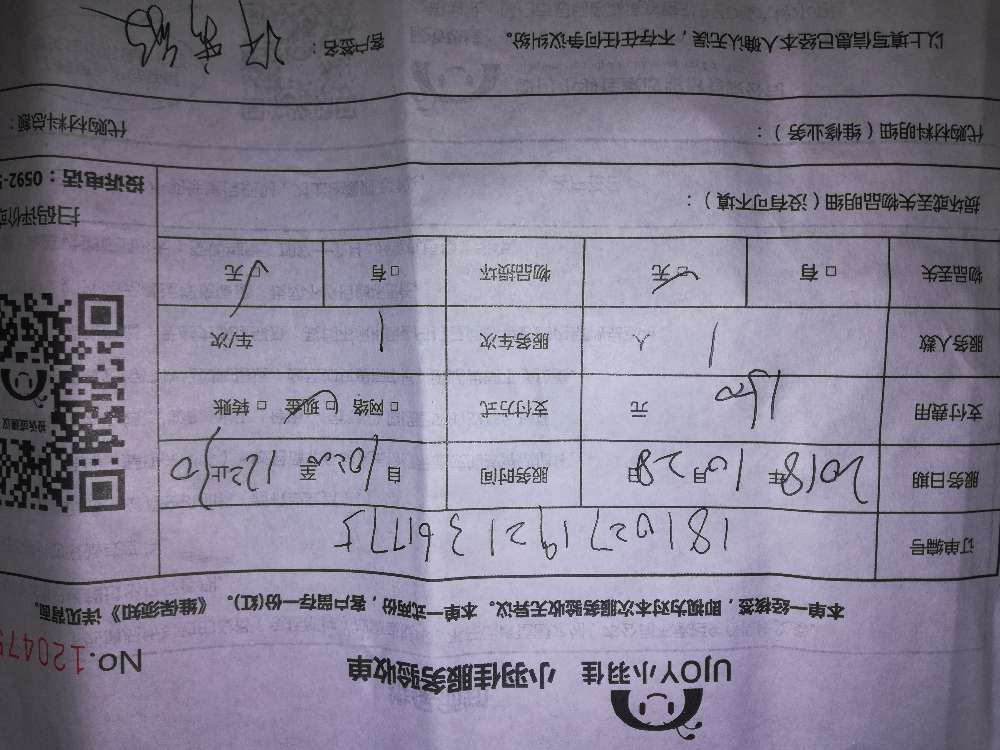 UJOY小羽佳 小羽佳服务验收单
No.120479
本单一经接签，即视为对本次服务验收无异议。本单一式两份，客户留存一份(红)。《维保须知》详见背面。
订单编号 181027192136175
服务日期 2018年10月28日 服务时间 自10:00至12:30止
支付费用 元 支付方式 □网络 □现金 □转账
服务人数 1 人 服务车次 1 车/次
物品丢失 □有 □无 物品损坏 □有 □无
投诉或建议
扫码评价或
损坏或丢失物品明细（没有可不填）：
投诉电话：0592-5
代购材料明细（维修业务）：
代购材料总额：
以上填写信息已经本人确认无误，不存在任何争议纠纷。 客户签名：